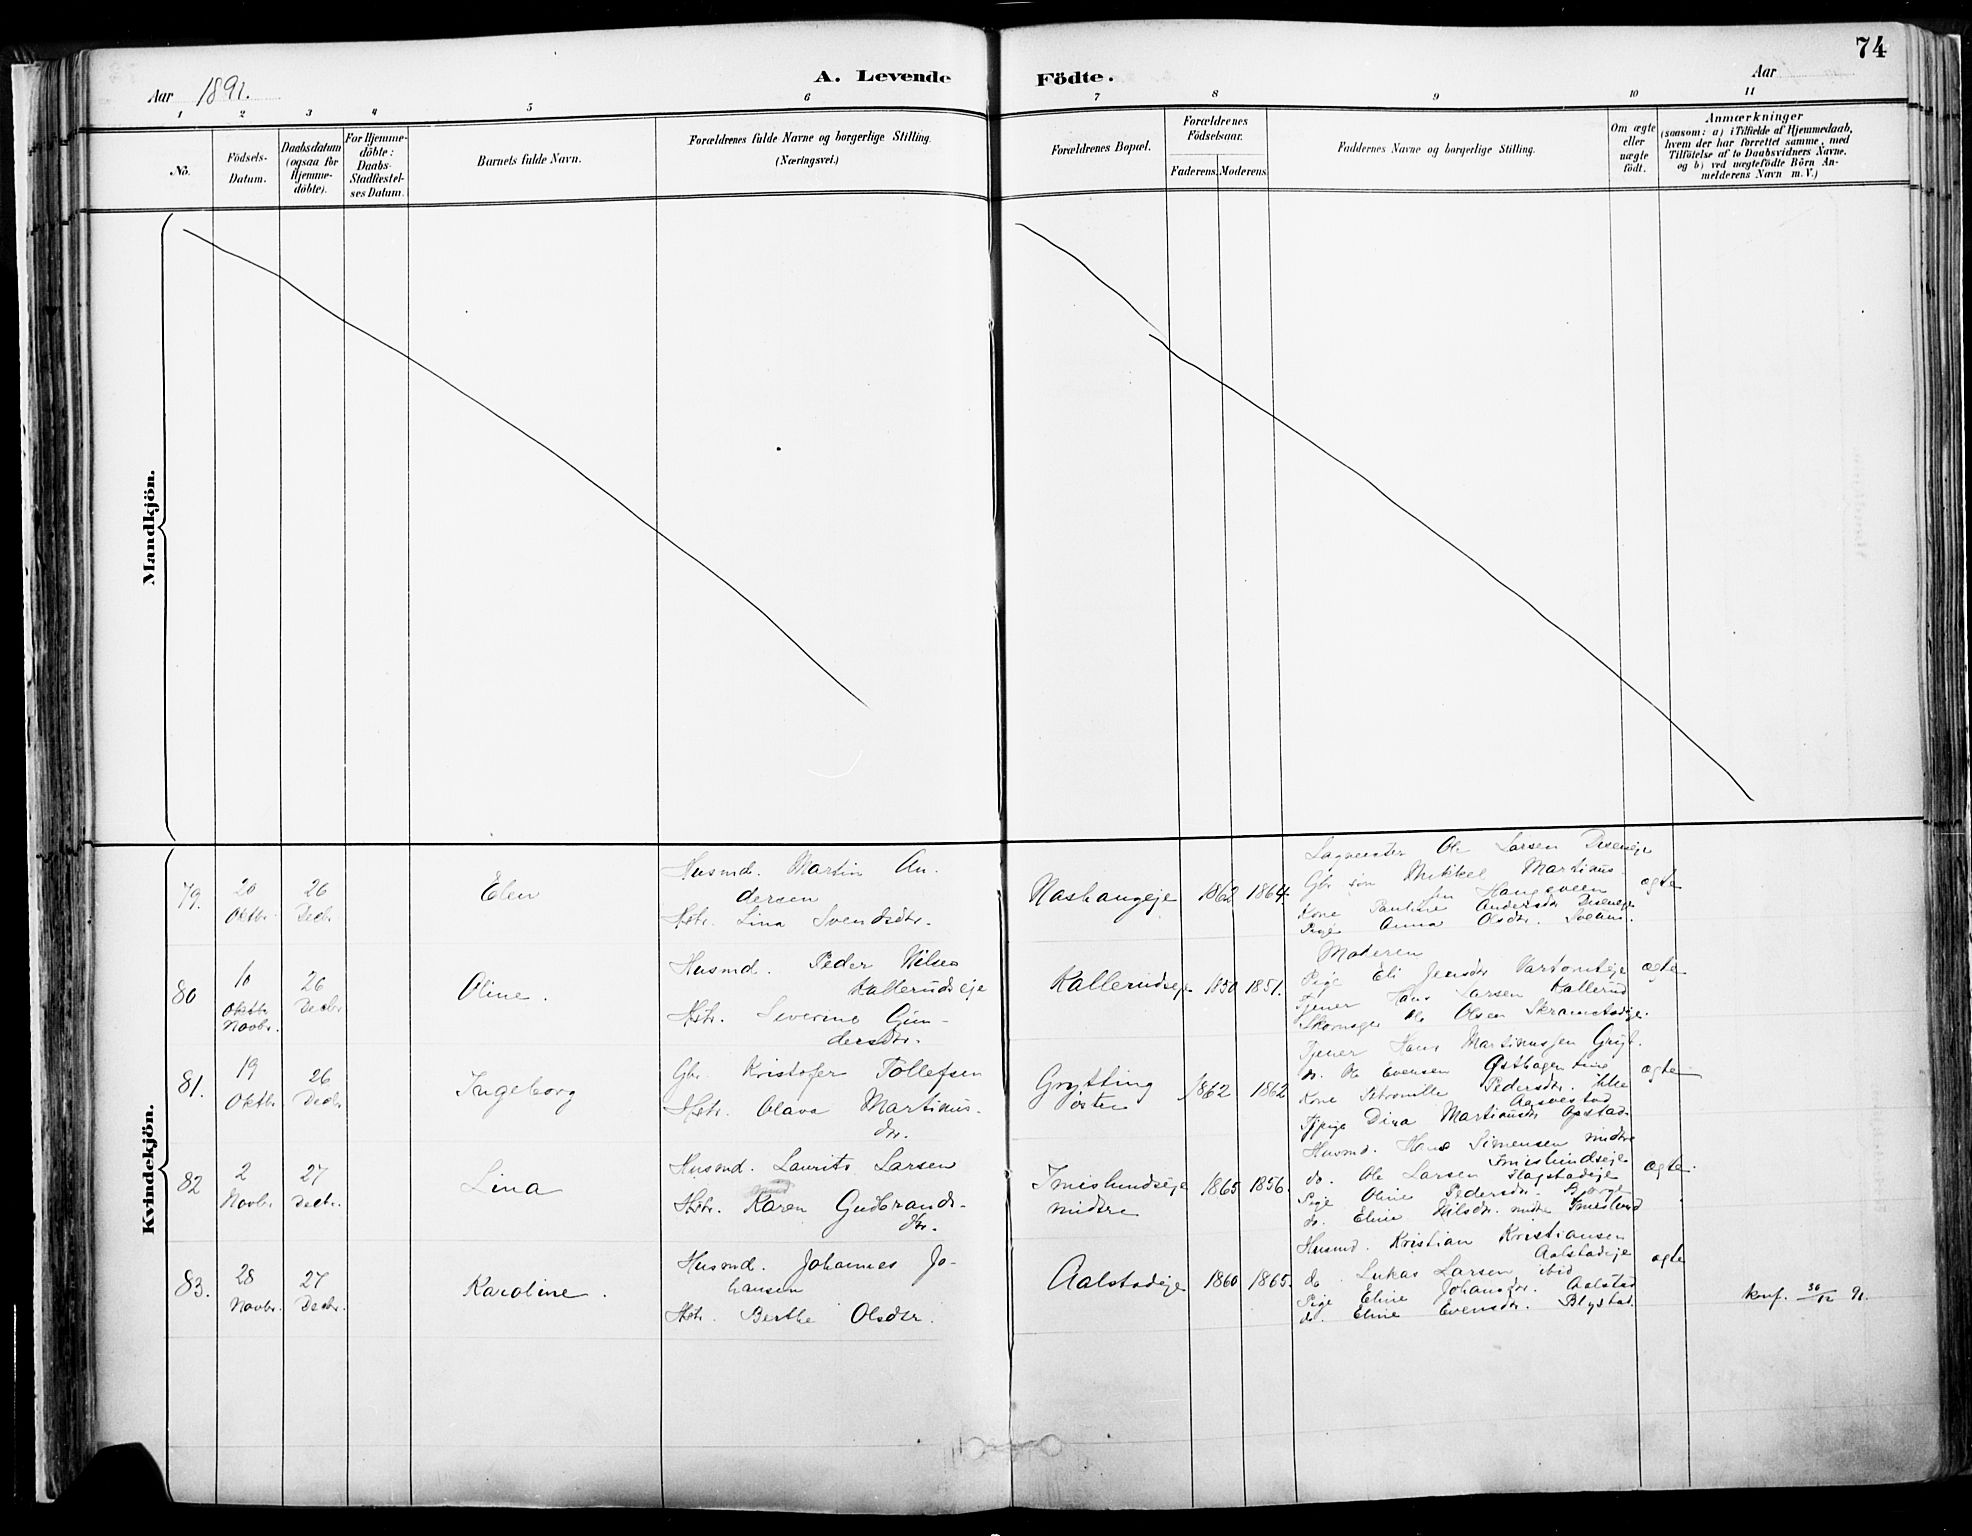 74
Aar 1891.
A. Levende Födte.
Aar
1 2 3 4 5 6 7 8 9 10 11
No.
Födsels-Datum.
Daabsdatum (ogsaa for Hjemme-döbte).
For Hjemme-döbte: Daabs-Stadfæstel-ses Datum.
Barnets fulde Navn.
Forældrenes fulde Navne og borgerlige Stilling.
(Næringsvei.)
Forældrenes Bopæl.
Forældrenes Födselsaar.
Faderens. Moderens.
Faddernes Navne og borgerlige Stilling.
Om ægte eller uægte födt.
Anmærkninger
(saasom: a) i Tilfælde af Hjemmedaab,
hvem der har forrettet samme, med
Tilföielse af to Daabsvidners Navne,
og b) ved uægtefödte Börn An-
melderens Navn m. V.)
Mandkjön.
Kvindekjön.
79. 20 Oktbr. 26 Decbr. Elen
Husmd. Martin An-
dersen
Hstr. Lina Svendsdtr.
1862 1864.
Ole Larsen
Gbr. søn Mikkel Martinus-
sen
Kone Pauline Andersdtr
Pige Anna Olsdtr.
ægte
80 16 Oktbr. Novbr. 26 Decbr. Oline.
Husmd. Peder Nilsen
Kallerudseje
Hstr. Severine Gun-
dersdtr.
Kallerudseje 1850 1851.
Moderen
Pige Eli Jensdtr
Tjener Hans Larsen Kallerud
Skomager Ole Olsen
ægte
81. 19 Oktbr. 26 Decbr. Ingeborg
Gbr. Kristofer Tollefsen
Hstr. Olava Martinus-
dtr.
Grytting
østre
1862 1862
Tjener Hans Martinussen Gryt-
do. Ole Evensen
Kone Petronille Pedersdtr.
Dina Martinusdtr
ægte
82 2 Novbr. 27 Decbr. Lina
Husmd. Laurits Larsen
Hstr. Karen Gudbrands-
dtr.
Imislundseje
midtre
1865 1856.
Husmd. Hans Simensen midtre
Imislundseje
do. Ole Larsen
Pige Oline Pedersdtr.
do. Eline Nilsdtr. midtre Imislund
ægte.
83. 28 Novbr. 27 Decbr. Karoline.
Husmd. Johannes Jo-
hansen
Hstr. Berthe Olsdtr.
Aalstadeje 1860 1865.
Husmd. Kristian Kristiansen
Aalstadeje
do. Lukas Larsen ibid
Pige Eline Johansdtr. Aalstad
do. Eline Evensdtr. Blystad.
ægte
konf. 30/12 91.